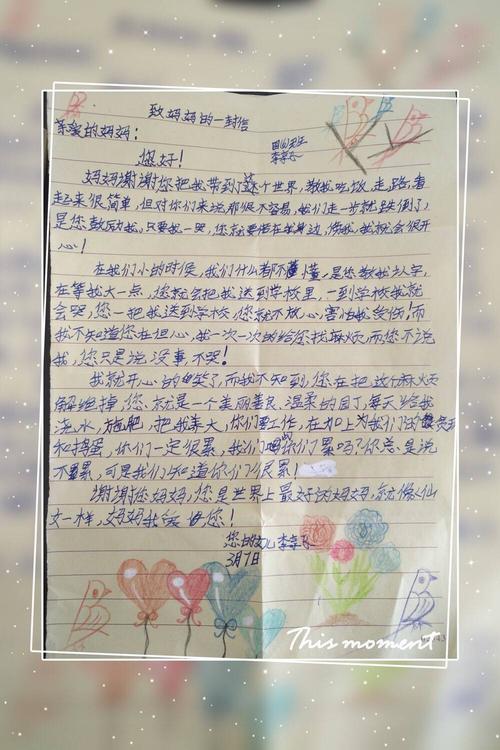 致妈妈的一封信
亲爱的妈妈：
您好！
妈妈谢谢您把我带到了这个世界，教我吃饭、走路，看
起来很简单，但对你们来说却很不容易，我们走一步就跌倒了，
是您鼓励我，只要我一哭，您就要陪在我身边，我就会很开
心！
在我们小的时候，我们什么都不懂，是您教我认字，
在等我大一点，您就会把我送到学校里，一到学校我就
会哭，您一把我送到学校，您就不放心，害怕我受伤！而
我不知道您在但心，我一次一次的给您找麻烦，而您不说
我，您只是说没事不哭！
我就开心的笑了，而我不知到，您在把这个麻烦
解绝掉，您就是一个美丽善良、温柔的园丁，每天给我
浇水，施肥，把我养大，你们要工作，在加上为我们的
和捣蛋，你们一定很累，我们问你们累吗？你总是说
不累，可是我们知道你们很累！
谢谢您妈妈，您是世界上最好的妈妈，就像仙
女一样，妈妈我爱您！
您的女儿李
3月7日
This moment